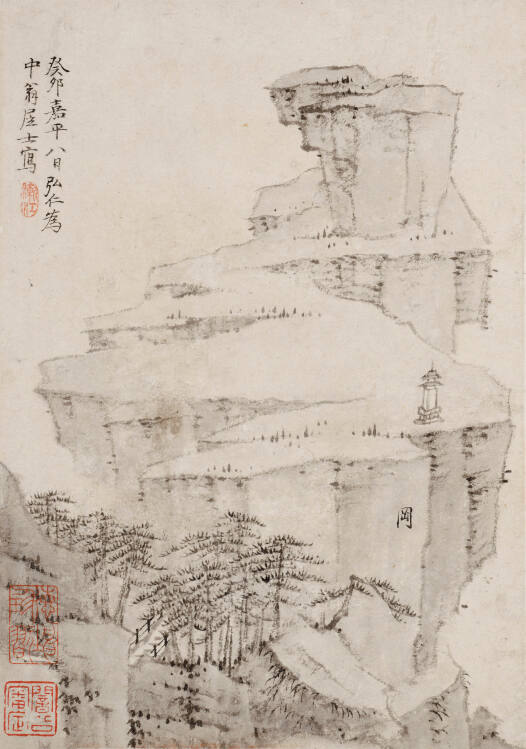 癸卯嘉平八日弘仁為
中翁居士寫
岡